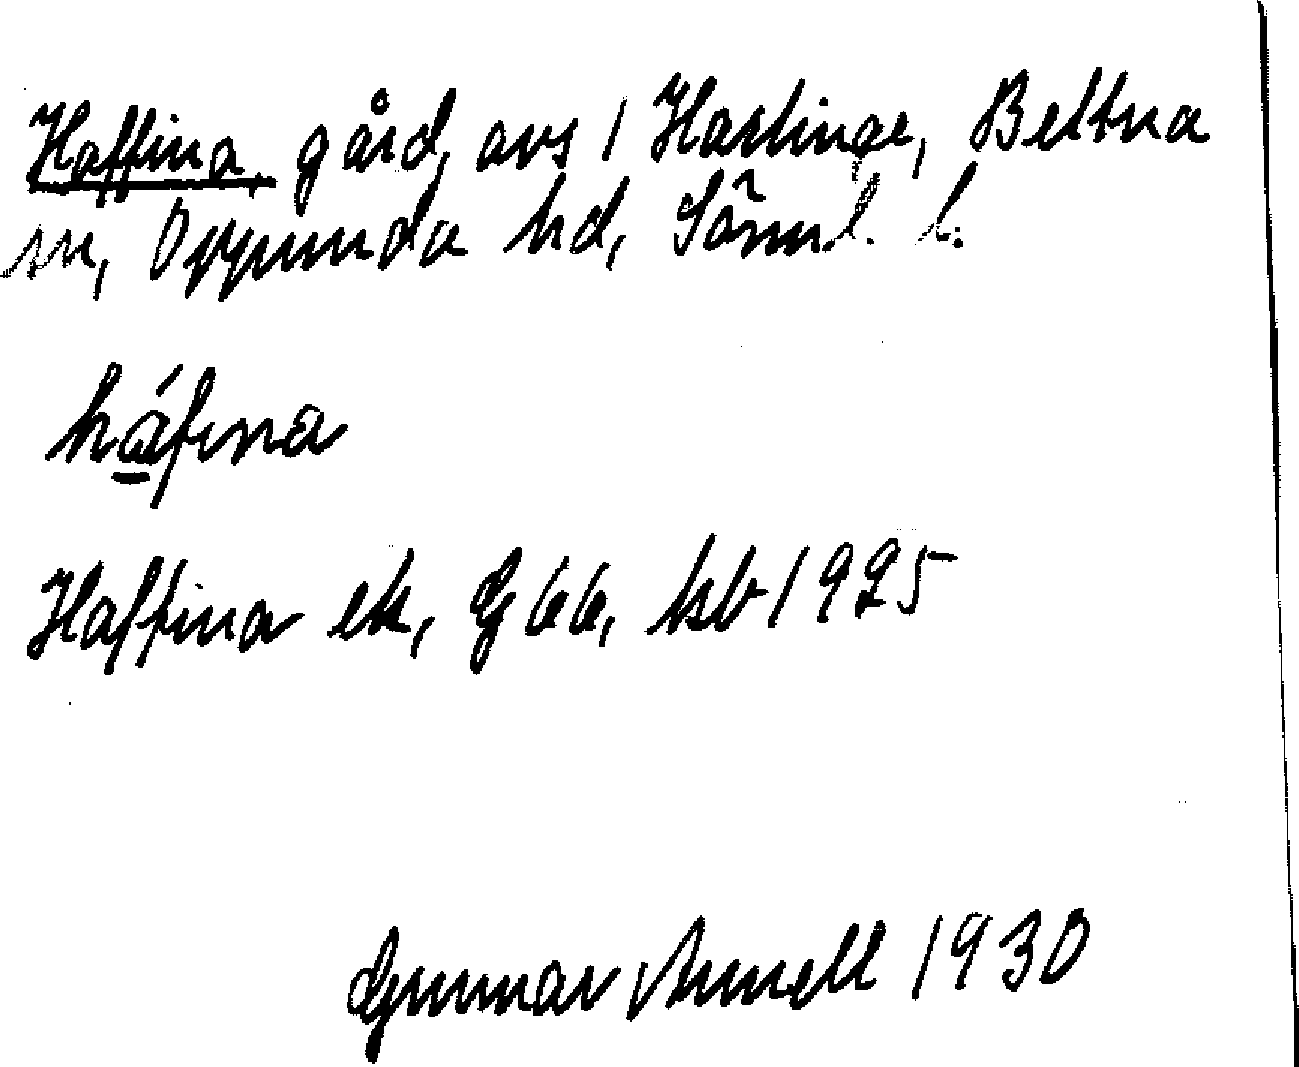 Haffina, gård, avs / Hartinge, Bettna
sn, Oppunda hd, Sörml. l.
háfina
Haffina ek, G 66, hsb 1925
Gunnar Arnell 1930